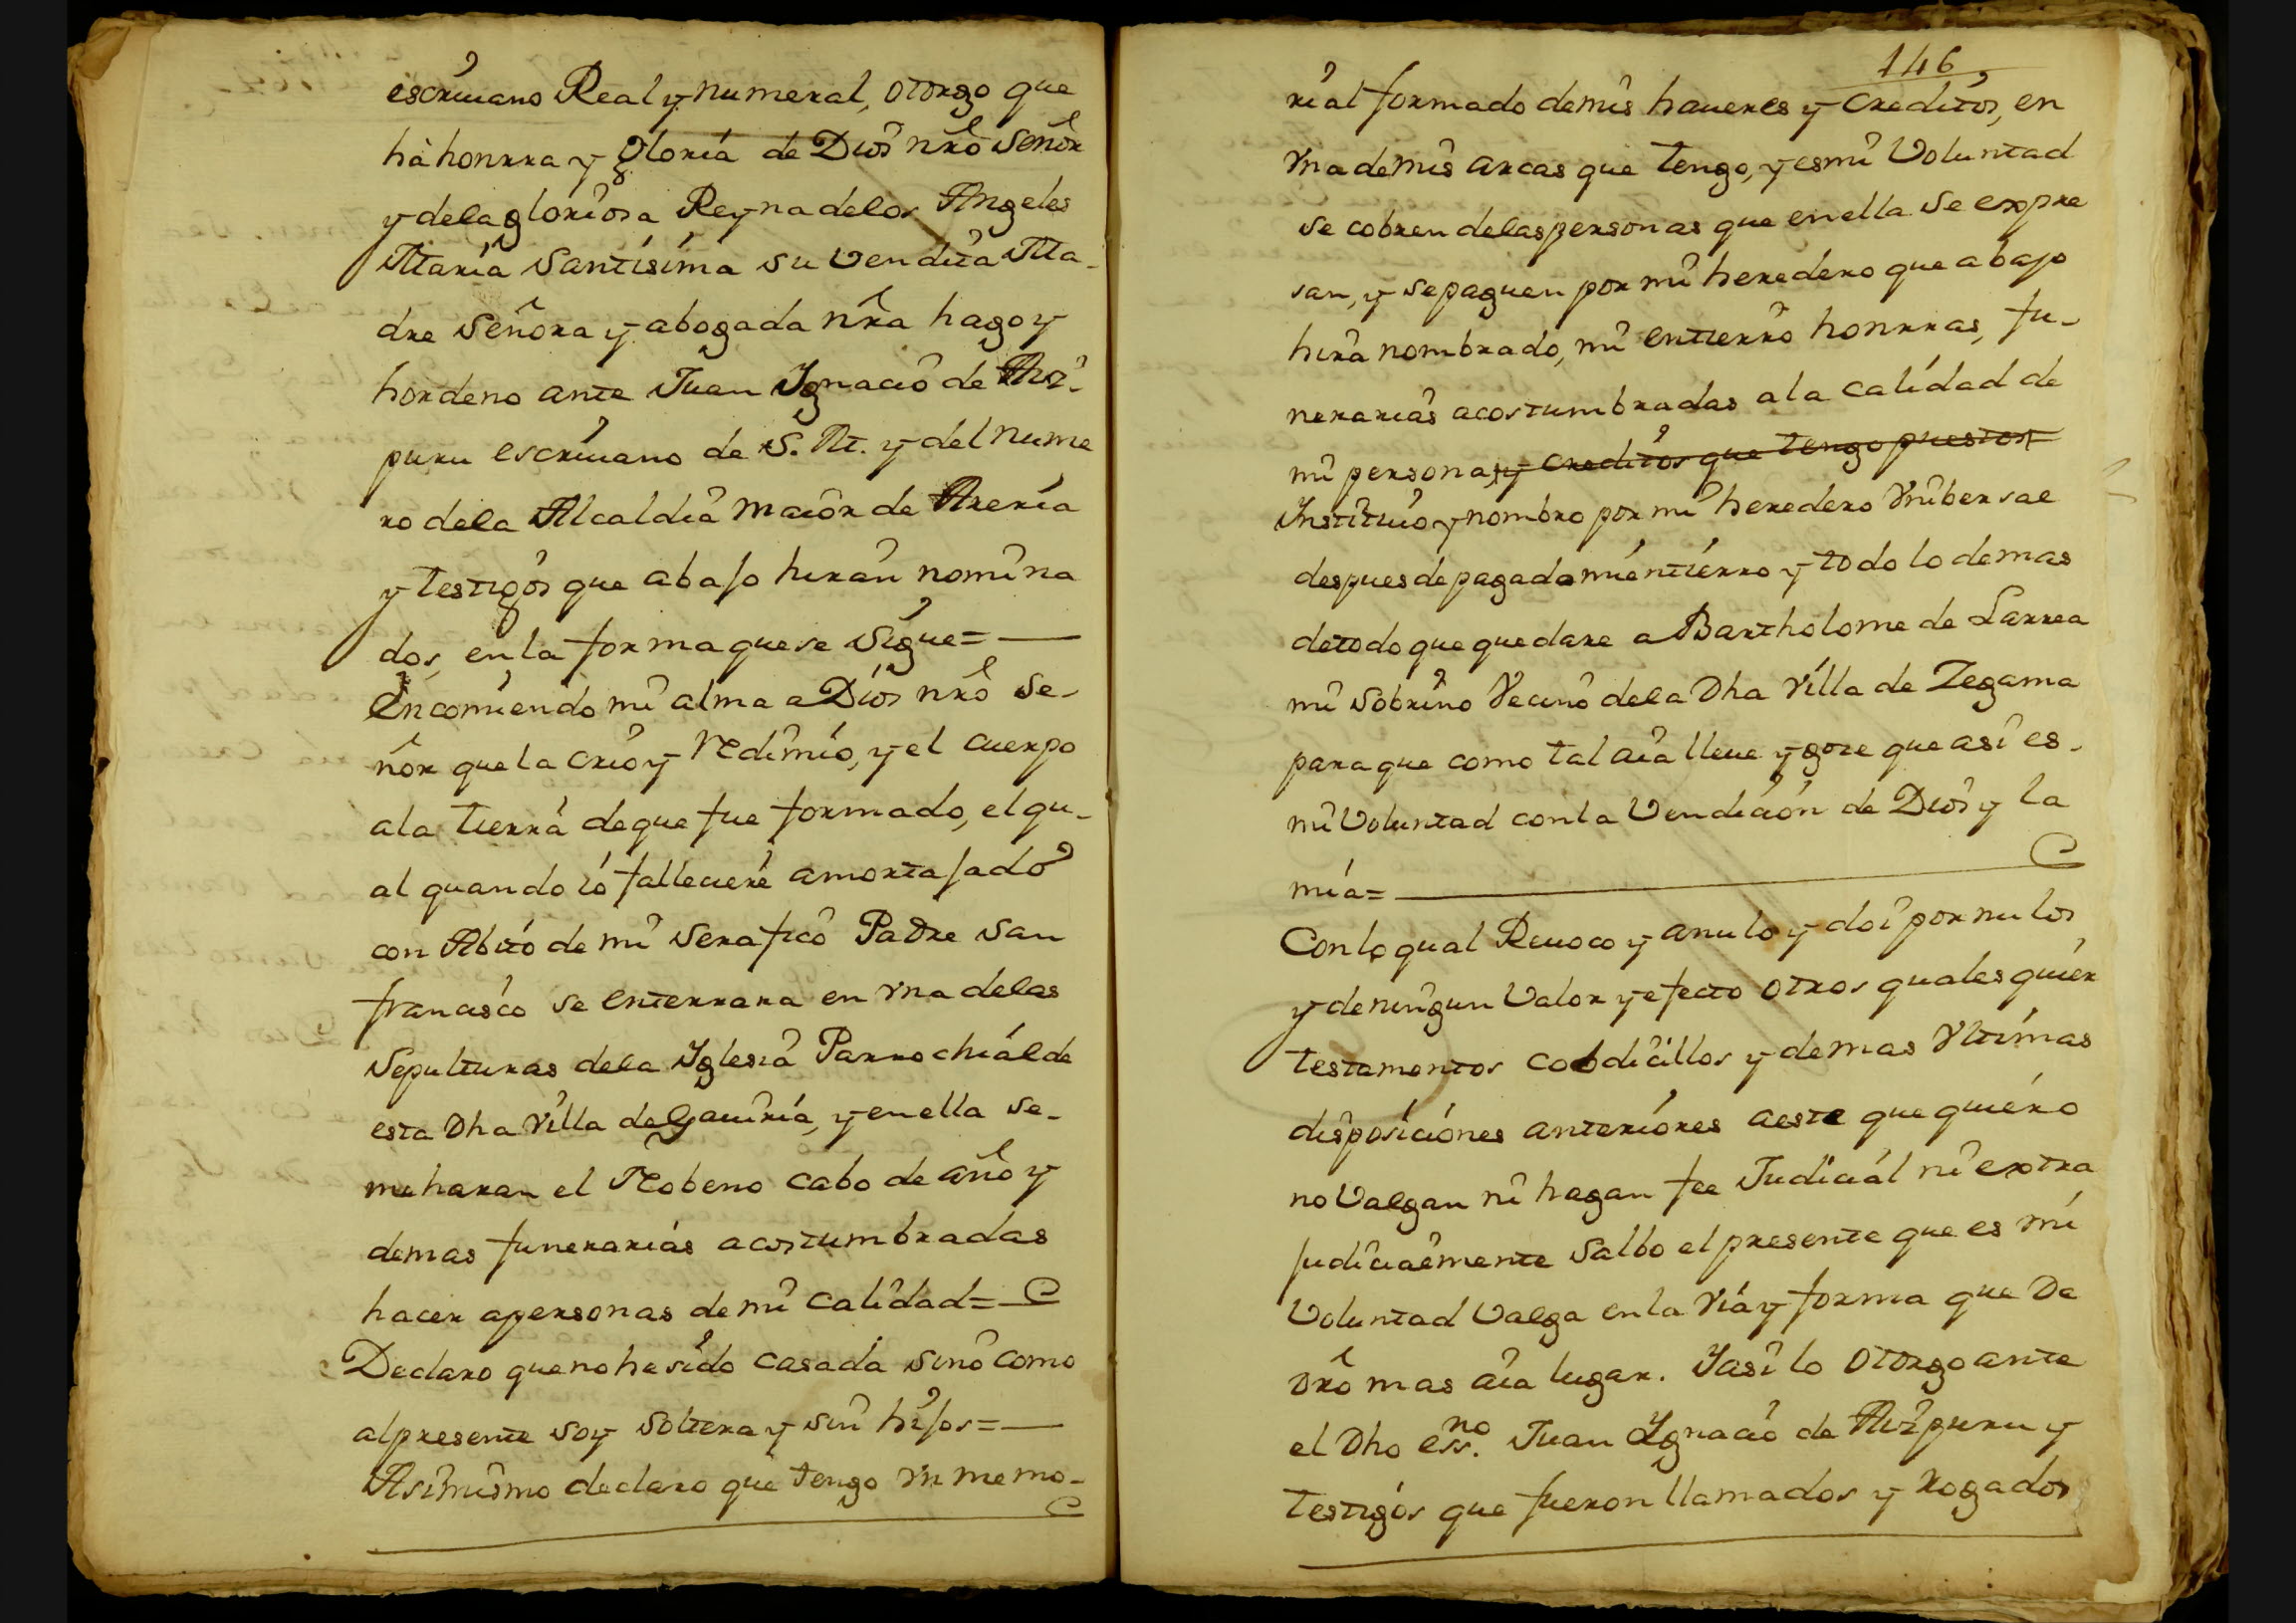 escriuano Real y numeral, otorgo que
hà honrra y gloria de Dios nrô Señor
y dela gloriosa Reyna delos Angeles
Maria Santisima su Vendita Ma-
dre Señora y abogada nrâ hago y
hordeno ante Juan Ygnacio de Aiz-
puru escriuano de S. M. y del nume
ro dela Alcaldia maior de Areria
y testigos que abajo hiran nomina
dos, en la forma que se sigue=
Encomiendo mi alma a Dios nrô Se-
ñor que la crio y redimio, y el cuerpo
ala tierra de que fue formado, el qu-
al quando io falleciere amortajado
con Abito de mi Serafico Padre San
francisco se enterrara en vna delas
Sepulturas dela Yglesia Parrochial de
esta Dha Villa de Gauiria, y en ella se-
me haran el Nobeno cabo de año y
demas funerarias acostumbradas
hacer apersonas de mi calidad=
Declaro que no he sido casada sino como
al presente soy soltera y sin hijos=
Asimismo declaro que tengo vn memo-
146
rial formado de mis haueres y creditos, en
vna de mis arcas que tengo, y es mi Voluntad
se cobren delas personas que en ella se expre
san, y se paguen por mi heredero que abajo
hira nombrado, mi entierro honrras, fu-
nerarias acostumbradas ala calidad de
mi persona, y creditos que tengo puestos
Instituio y nombro por mi heredero Vnibersal
despues de pagado mi entierro y todo lo demas
de todo que quedare a Bartholome de Larrea
mi sobrino Vecino dela Dha Villa de Zegama
para que como tal aia lleue y goze que asi es-
mi Voluntad con la Vendicion de Dios y la
mia=
Con lo qual Reuoco y anulo y doi por nulos
y de ningun Valor y efecto otros quales quier
testamentos cobdicillos y demas Vltimas
disposiciones anteriores aeste que quiero
no Valgan ni hagan fee Judicial ni extra
judicialmente salbo el presente que es mi
Voluntad Valga en la via y forma que De
drô mas aia lugar. Yasi lo otorgo ante
el Dho ess.no Juan Ygnacio de Aizpuru y
testigos que fueron llamados y rogados